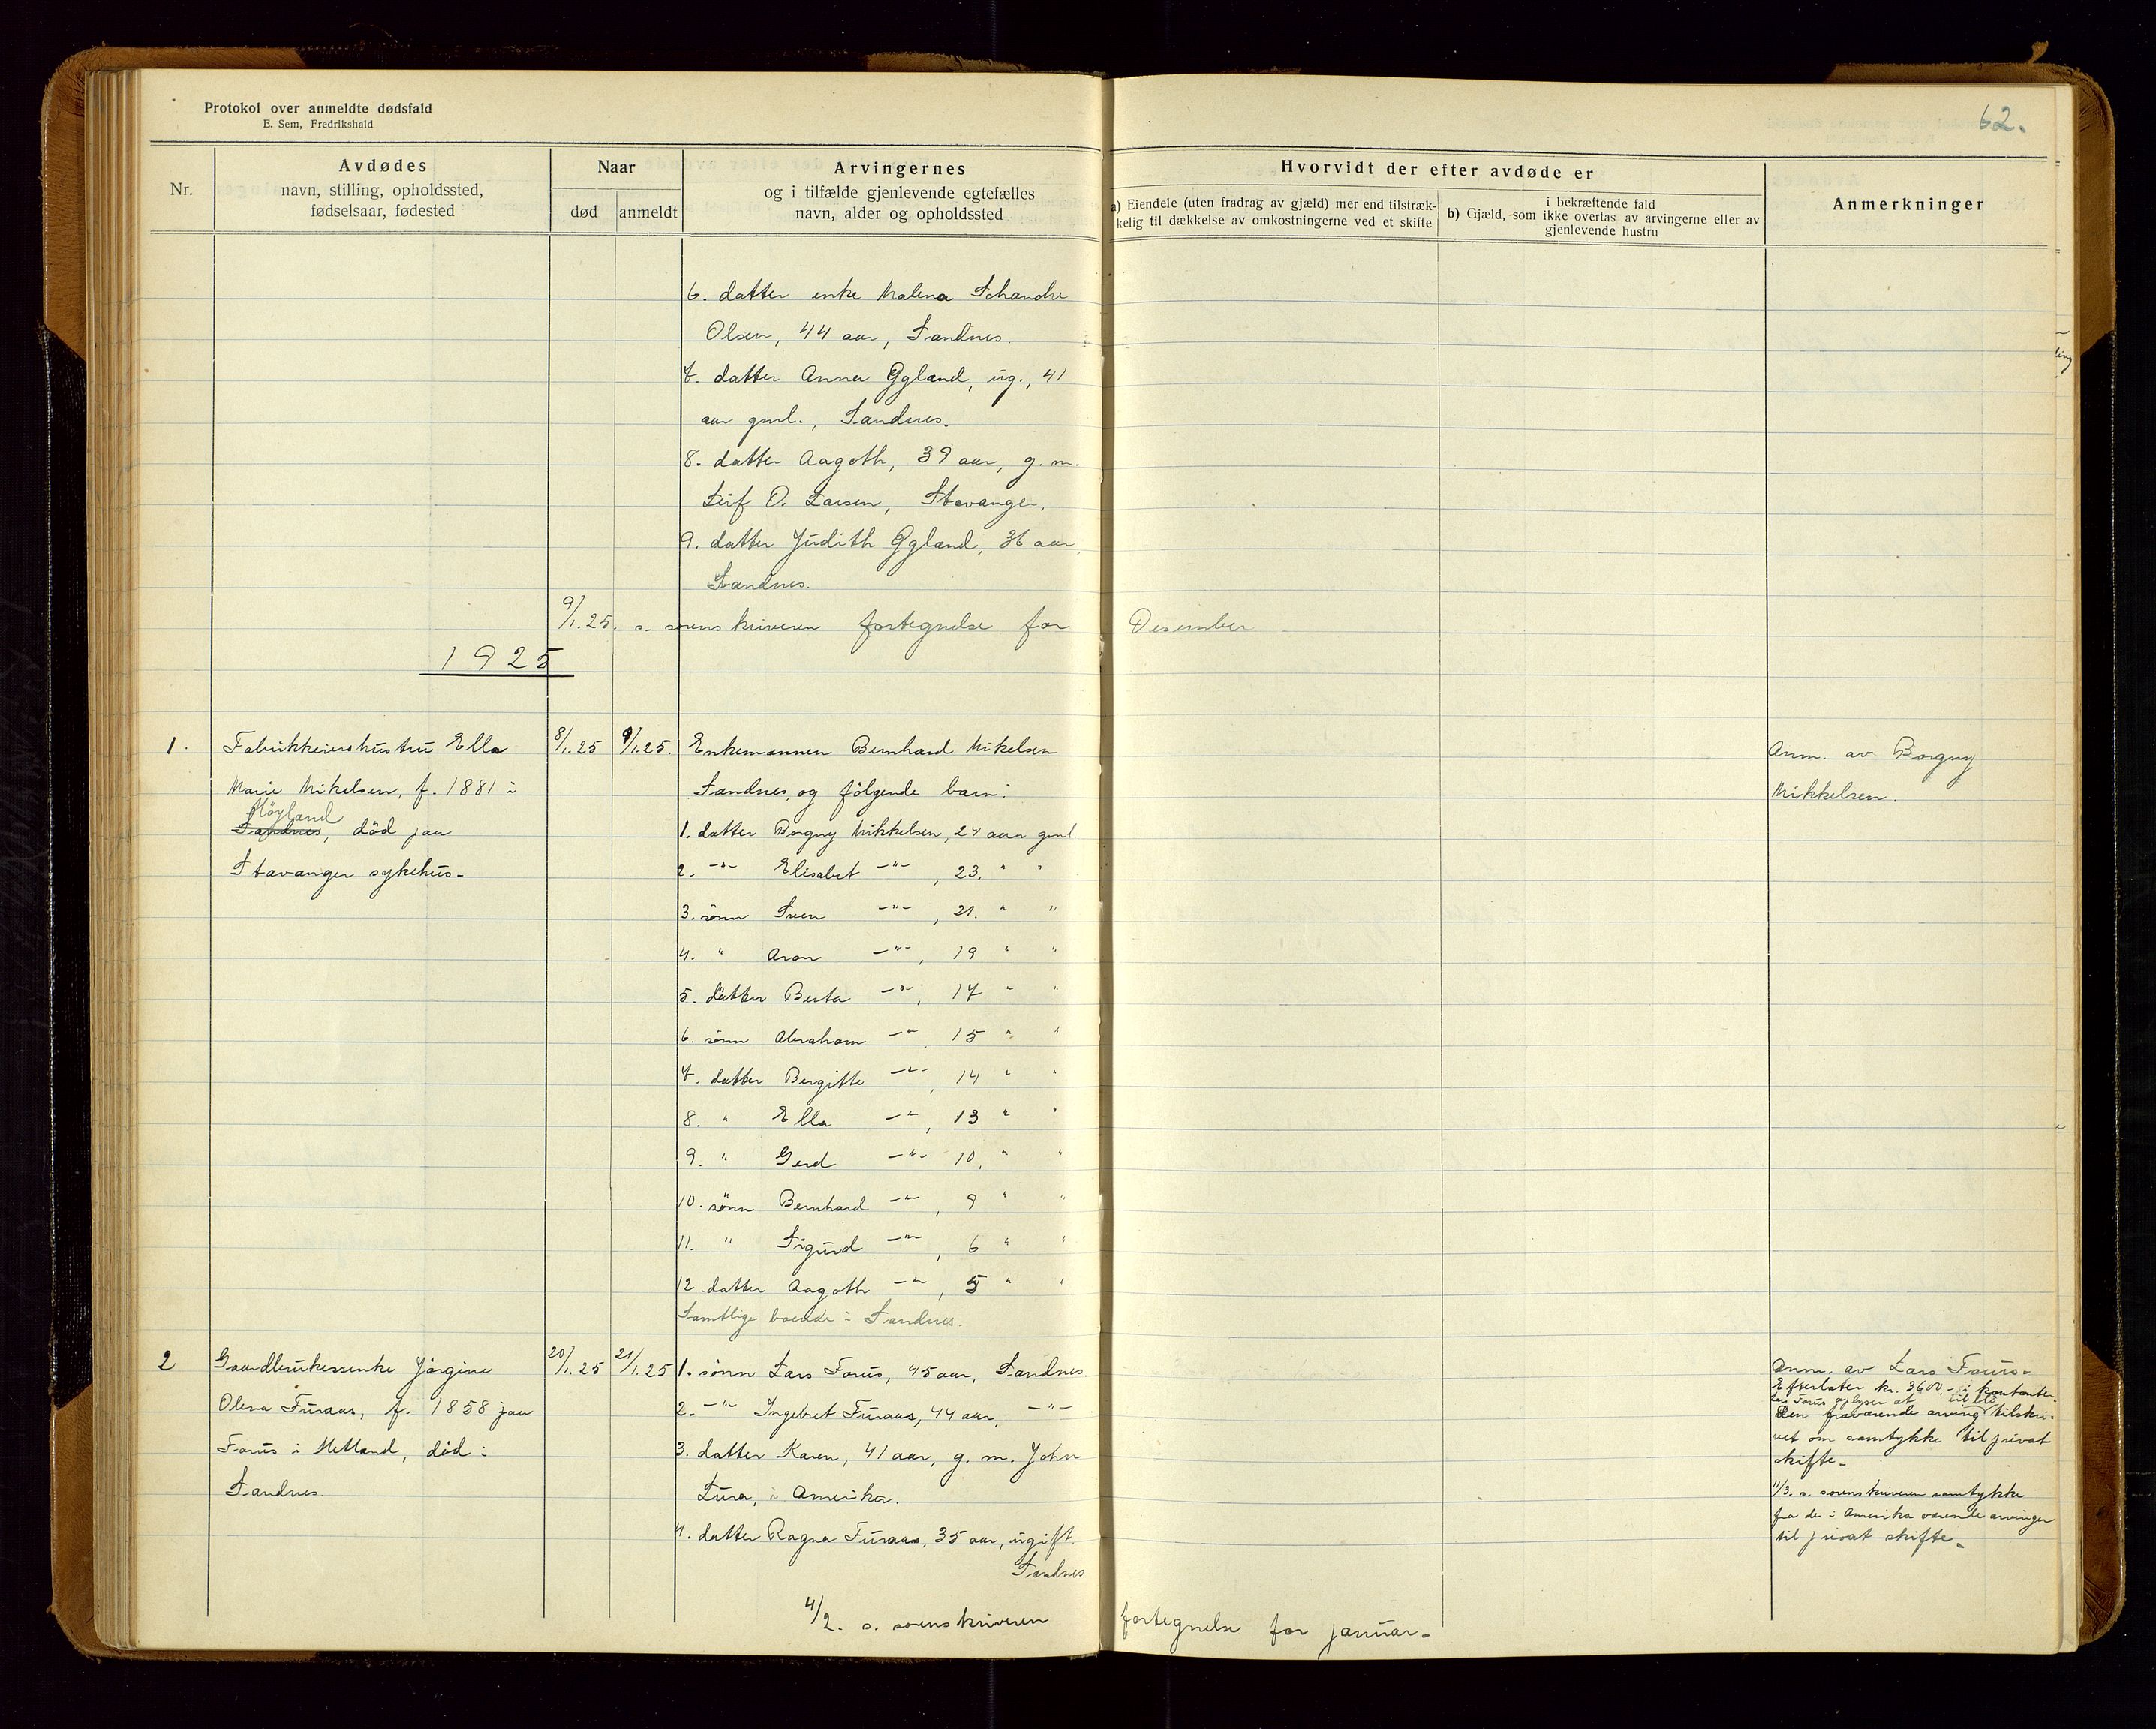 Protokol over anmeldte dødsfald
E. Sem, Fredrikshald
62.
Nr.
Avdødes
navn, stilling, opholdssted,
fødselsaar, fødested
Naar
død
anmeldt
Arvingernes
og i tilfælde gjenlevende egtefælles
navn, alder og opholdssted
Hvorvidt der efter avdøde er
a) Eiendele (uten fradrag av gjæld) mer end tilstræk-
kelig til dækkelse av omkostningerne ved et skifte
i bekræftende fald
b) Gjæld, som ikke overtas av arvingerne eller av
gjenlevende hustru
Anmerkninger
6. datter enke Malena Schanche
Olsen, 44 aar, Sandnes.
7. datter Anna Ggland, ug., 41
aar gml., Sandnes.
8. datter Aagoth, 39 aar, g. m.
Leif O. Larsen, Stavanger.
9. datter Judith Ggland, 36 aar,
Sandnes.
9/1.25. s. sorenskriveren fortegnelse for Desember
1925
1. Fabrikkeierhustru Ella 8/1.25 9/1.25. Enkemannen Bernhard Mikelsen
Marie Mikelsen, f. 1881 i
Høyland
Sandnes, død paa
Stavanger sykehus.
Sandnes, og følgende barn:
1. datter Borgny Mikkelsen, 24 aar gml.
2. -"- Elisabet -"-, 23. " "
3. sønn Sven -"-, 21. " "
4. " Aron -"-, 19 " "
5. datter Berta -"-, 17 " "
6. sønn Abraham -"-, 15 " "
7. datter Bergitte -"-, 14 " "
8. " Ella -"-, 13 " "
9. " Gerd -"- 10, " "
10. sønn Bernhard -"-, 9 " "
11. " Sigurd -"-, 6 " "
12. datter Aagoth -"-, 5 " "
Samtlige boende i Sandnes.
Anm. av Borgny
Mikkelsen.
2 Gaardbrukersenke Jørgine 20/1.25 21/1.25
Olena Furaas, f. 1858 paa
Forus i Hetland, død i
Sandnes.
1. sønn Lars Forus, 45 aar, Sandnes.
2. -"- Ingebret Furaas, 44 aar, -"-
3. datter Karen, 41 aar, g. m. John
Lura, i Amerika.
4. datter Ragna Furaas, 35 aar, ugift.
Sandnes
Anm. av Lars Forus.
Efterlater kr. 3600.- i kontanter.
Lars Forus oplyser at vil bli
Den fraværende arving tilskri-
vet om samtykke til privat
skifte.
11/3. s. sorenskriveren samtykke
fra de i Amerika værende arvinger
til privat skifte.
4/2. s. sorenskriveren fortegnelse for januar.